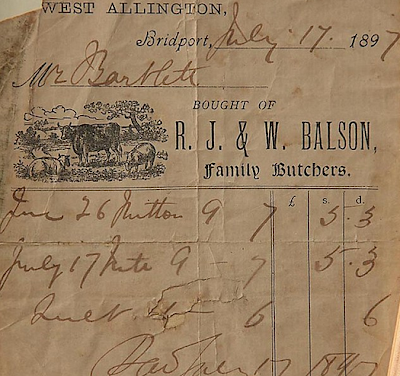 WEST ALLINGTON,
Bridport, July 17 1897
Mr Bartlett
BOUGHT OF
R. J. & W. BALSON,
Family Butchers.
£ s. d.
June 26 Mutton 9 7 5 3
July 17 9 7 5 3
6 6
July 17 1897